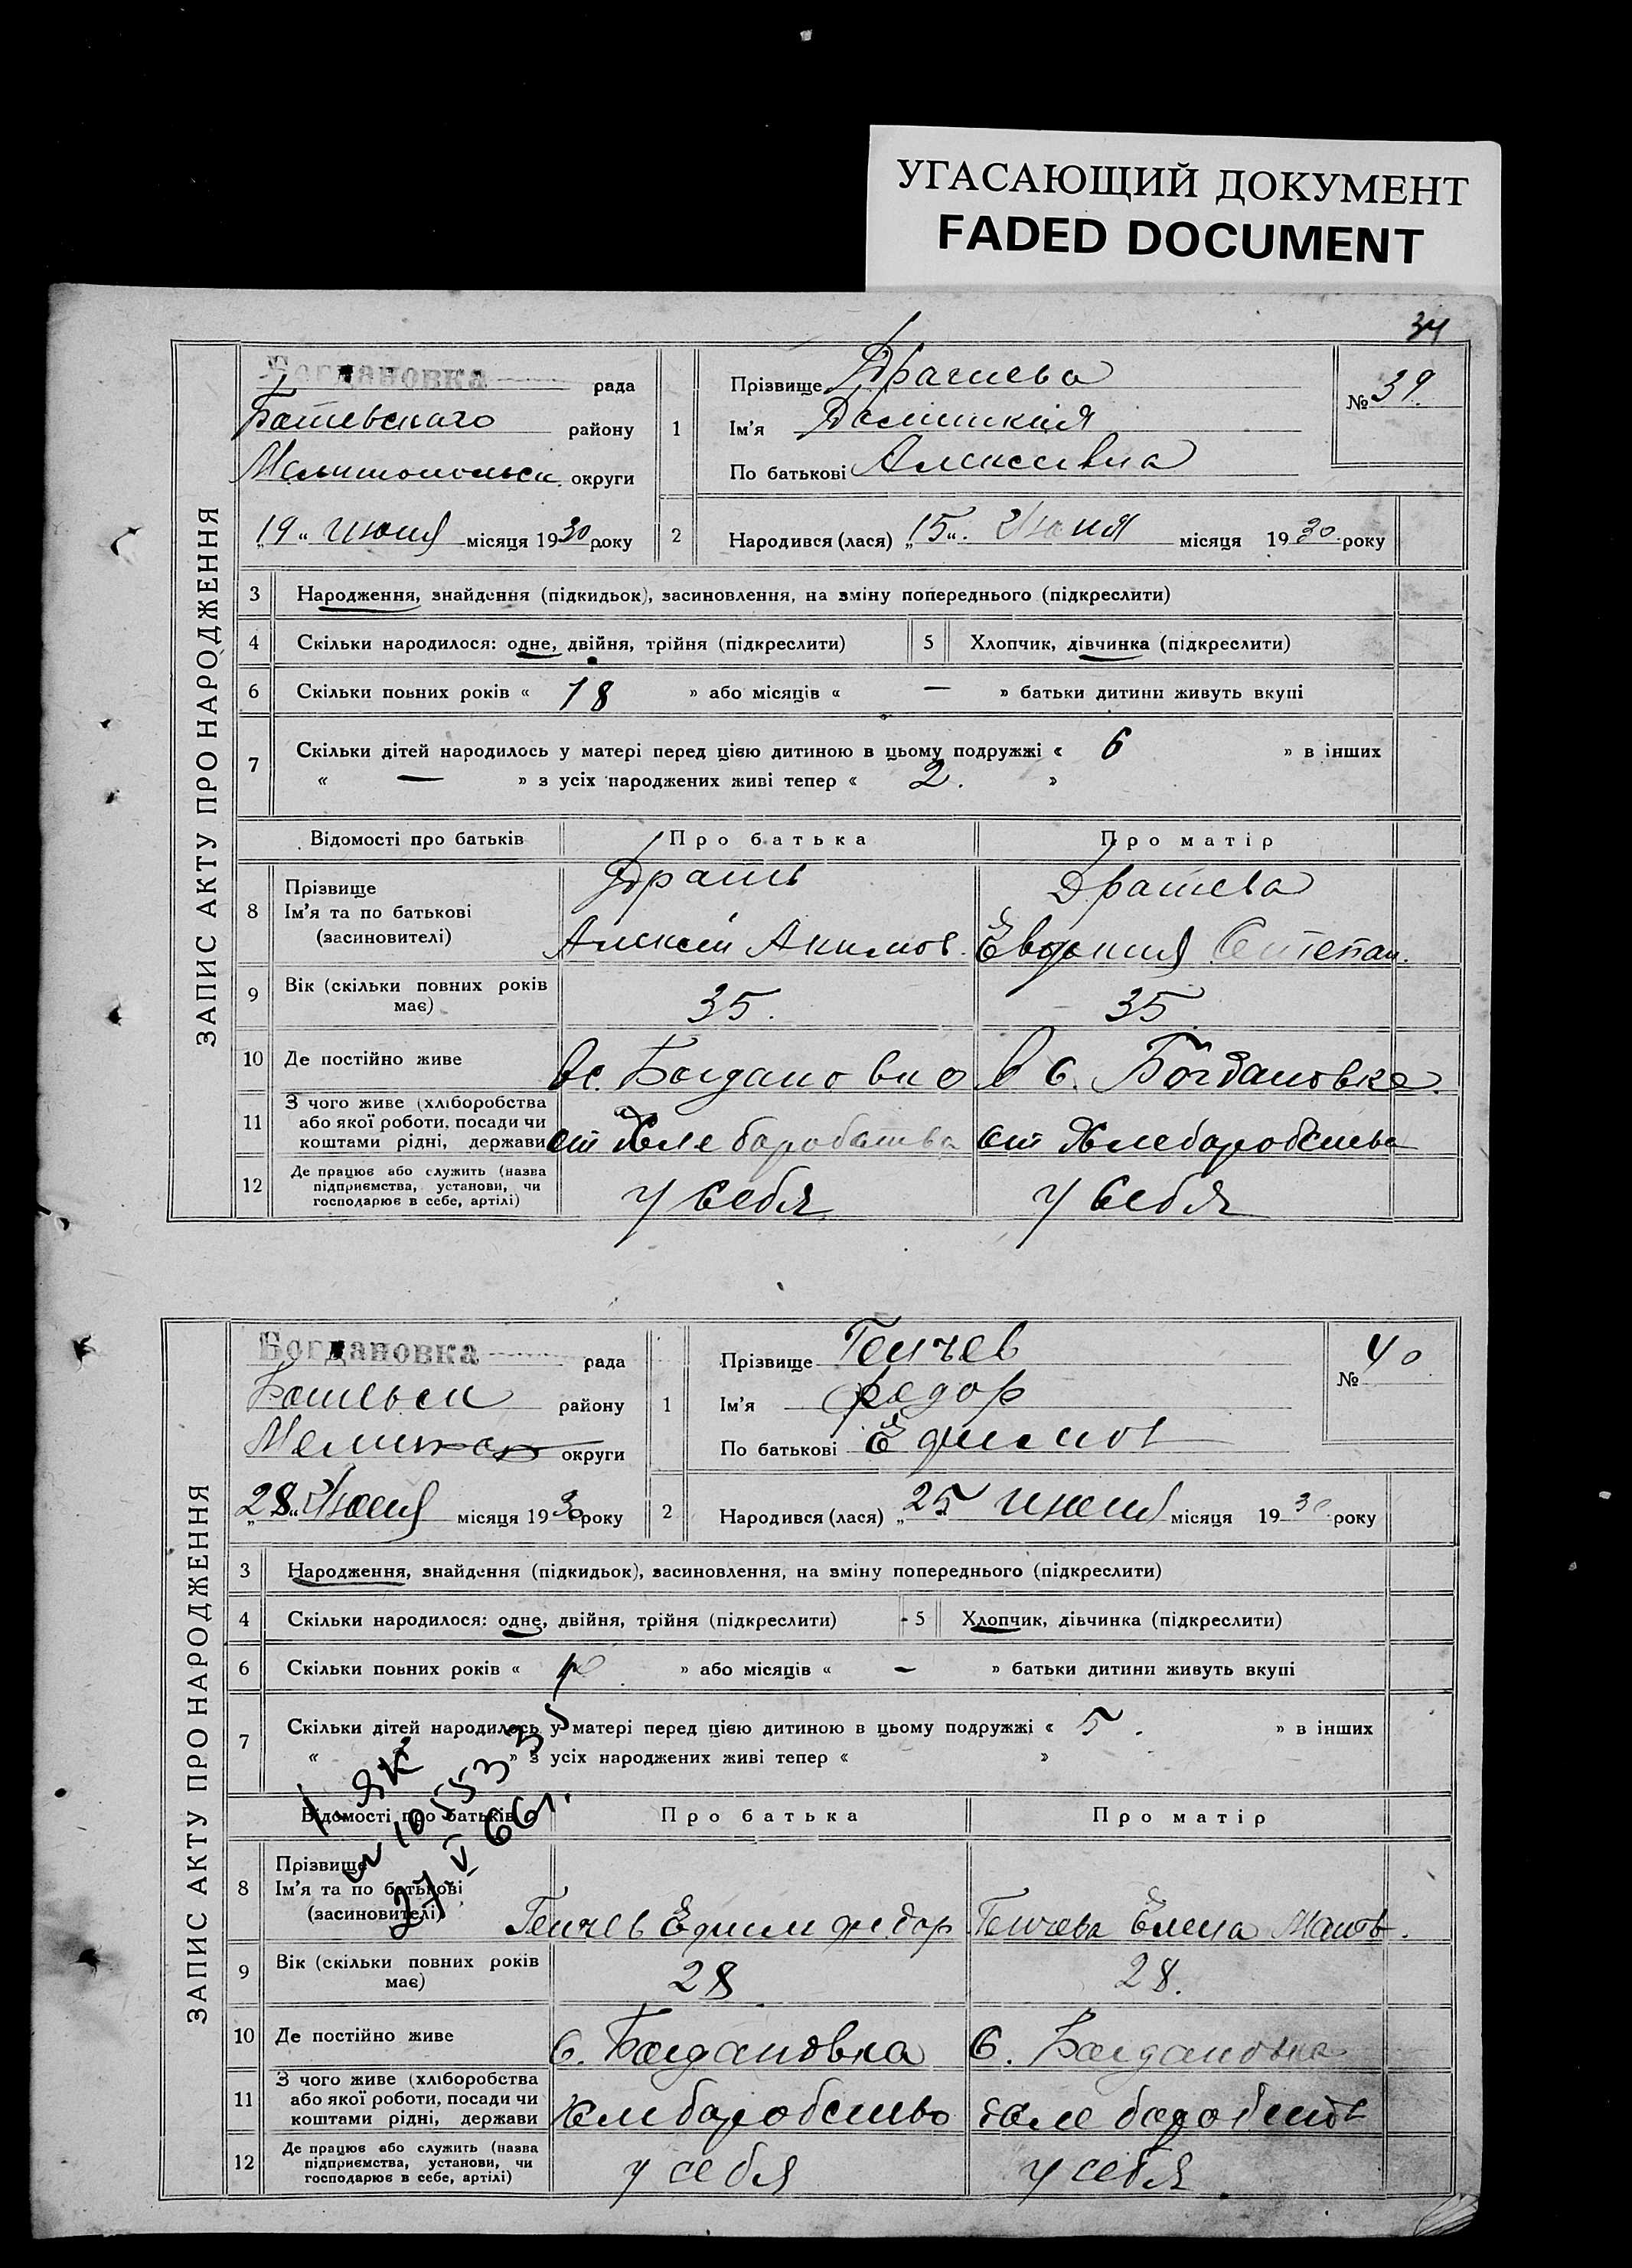 УГАСАЮЩИЙ ДОКУМЕНТ
FADED DOCUMENT
34
ЗАПИС АКТУ ПРО НАРОДЖЕННЯ
Богдановка рада
района району
округи
„19“ июня місяця 1930 року
1 Прізвище Драгиева
Ім’я
По батькові Алексеевна
№ 39.
2 Народився (лася) „15“. Июня місяця 1930 року
3 Народження, знайдення (підкидьок), засиновлення, на зміну попереднього (підкреслити)
4 Скільки народилося: одне, двійня, трійня (підкреслити) 5 Хлопчик, дівчинка (підкреслити)
6 Скільки повних років « 18 » або місяців « — » батьки дитини живуть вкупі
7 Скільки дітей народилось у матері перед цією дитиною в цьому подружжі « 6 » в інших
« — » з усіх народжених живі тепер « 2. »
Відомості про батьків Про батька Про матір
8 Прізвище
Ім’я та по батькові
(засновителі)
Алексей Акимов. Евдокия Степан.
9 Вік (скільки повних років має) 35. 35
10 Де постійно живе в с. Богдановке в с. Богдановке.
11 З чого живе (хліборобства
або якої роботи, посади чи
коштами рідні, держави от Хлеборобства от Хлеборобства
12 Де працює або служить (назва
підприємства, установи, чи
господарює в себе, артілі) у себя у себя
ЗАПИС АКТУ ПРО НАРОДЖЕННЯ
Богдановка рада
району
округи
„28“ Июня місяця 1930 року
1 Прізвище Генчев
Ім’я Федор
По батькові Ефимов
№ 40
2 Народився (лася) „25 июня місяця 1930 року
3 Народження, знайдення (підкидьок), засиновлення, на зміну попереднього (підкреслити)
4 Скільки народилося: одне, двійня, трійня (підкреслити) 5 Хлопчик, дівчинка (підкреслити)
6 Скільки повних років « 10 » або місяців « – » батьки дитини живуть вкупі
7 Скільки дітей народилось у матері перед цією дитиною в цьому подружжі « 5. » в інших
« » з усіх народжених живі тепер « »
Відомості про батьків Про батька Про матір
8 Прізвище
Ім’я та по батькові
(засиновителі)
Генчев Ефим Федор Генчева Елена
9 Вік (скільки повних років має) 28 28.
10 Де постійно живе с. Богдановка с. Богдановка
11 З чого живе (хліборобства
або якої роботи, посади чи
коштами рідні, держави Хлеборобство
12 Де працює або служить (назва
підприємства, установи, чи
господарює в себе, артілі) у себя у себя